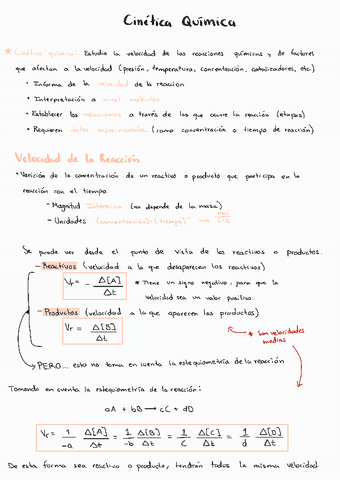 Cinética Química
* Cinética química: Estudia la velocidad de las reacciones químicas y los factores
que afectan a la velocidad (presión, temperatura, concentración, catalizadores, etc)
• Informa de la velocidad de la reacción
• Interpretación a nivel molecular
• Establecer los mecanismos a través de los que ocurre la reacción (etapas)
• Requieren datos experimentales (como concentración o tiempo de reacción)
Velocidad de la Reacción
• Variación de la concentración de un reactivo o producto que participa en la
reacción con el tiempo.
- Magnitud Intensiva (no depende de la masa)
- Unidades (concentración)·(tiempo)⁻¹ → mol/L·s
Se puede ver desde el punto de vista de los reactivos o productos.
- Reactivos (velocidad a la que desaparecen los reactivos)
Vr = - Δ[A]/Δt * Tiene un signo negativo, para que la
velocidad sea un valor positivo.
- Productos (velocidad a la que aparecen los productos)
Vr = Δ[B]/Δt
* Son velocidades
medias
→ PERO... esto no toma en cuenta la estequiometría de la reacción
Tomando en cuenta la estequiometría de la reacción:
aA + bB → cC + dD
Vr = 1/-a Δ[A]/Δt = 1/-b Δ[B]/Δt = 1/c Δ[C]/Δt = 1/d Δ[D]/Δt
De esta forma sea reactivo o producto, tendrán todos la misma velocidad